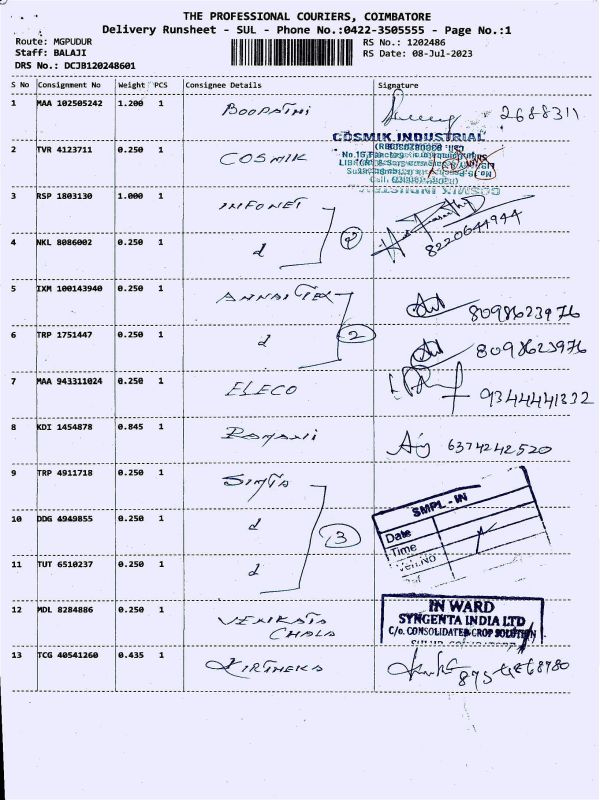 THE PROFESSIONAL COURIERS, COIMBATORE
Delivery Runsheet - SUL - Phone No.:0422-3505555 - Page No.:1
Route: MGPUDUR RS No.: 1202486
Staff: BALAJI RS Date: 08-Jul-2023
DRS No.: DCJB120248601
S No Consignment No Weight PCS Consignee Details Signature
1 MAA 102505242 1.200 1 BOOPATHI 2688311
COSMIK INDUSTRIAL
2 TVR 4123711 0.250 1 COSMIK
3 RSP 1803130 1.000 1 INFONET
8220644944
4 NKL 8086002 0.250 1 d 2
5 IXM 100143940 0.250 1 ANNAI TEX 8098623976
6 TRP 1751447 0.250 1 d 2 8098623976
7 MAA 943311024 0.250 1 ELECO 9344441332
8 KDI 1454878 0.845 1 6374242520
9 TRP 4911718 0.250 1 SIMTA
SMPL - IN
10 DDG 4949855 0.250 1 d 3
Date
Time
Veh.No
11 TUT 6510237 0.250 1 d
12 MDL 8284886 0.250 1 VENKATA
CHALA
IN WARD
SYNGENTA INDIA LTD
C/o. CONSOLIDATED CROP SOLUTION
13 TCG 40541260 0.435 1 KIRTHEKA